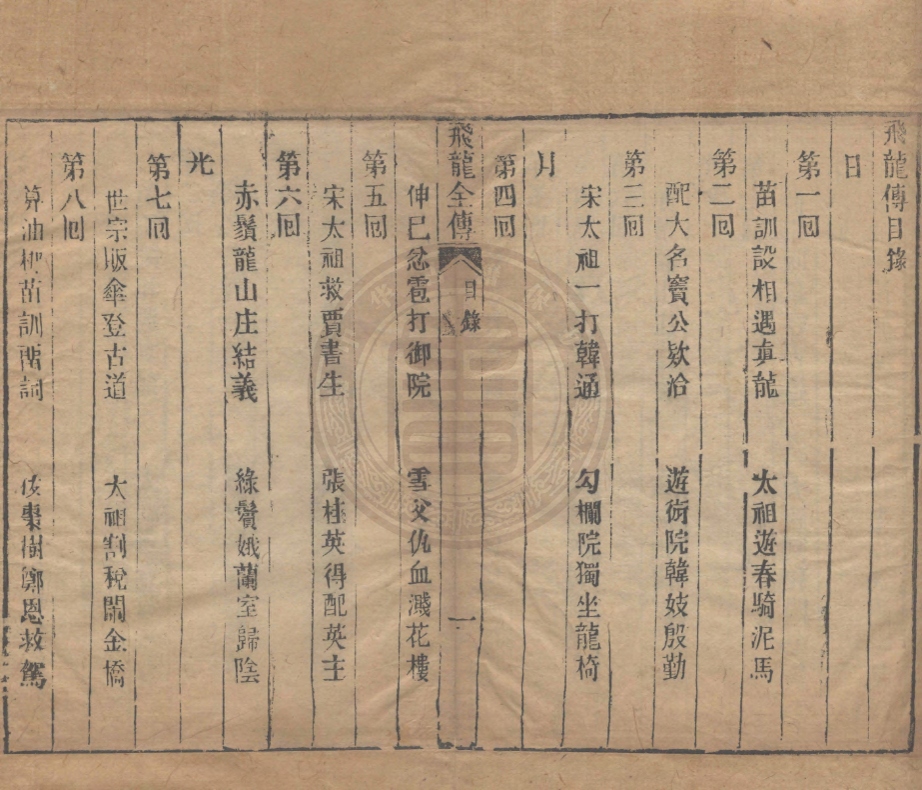 飛龍傳目錄
日
第一囘
苗訓設相遇真龍 太祖遊春騎泥馬
第二囘
配大名竇公欵洽 遊術院韓妓殷勤
第三囘
宋太祖一打韓通 勾欄院獨坐龍椅
月
第四囘
飛龍全傳 目錄 一
伸己忿雹打御院 雪父仇血濺花樓
第五囘
宋太祖救賈書生 張桂英得配英主
第六囘
赤鬚龍山庄結義 綠鬢娥蘭室歸陰
光
第七囘
世宗販傘登古道 太祖割稅閙金橋
第八囘
算油梆苗訓 詞 棗樹鄭恩救駕